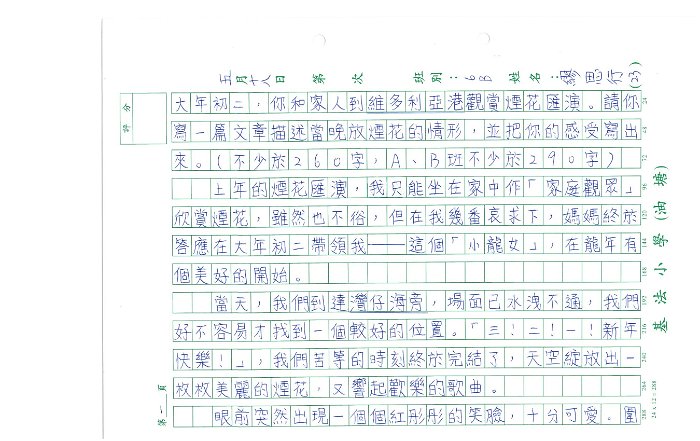 五月十八日 第 次 班別：6B 姓名：繆思行(23)
評分
大年初二，你和家人到維多利亞港觀賞煙花匯演。請你
寫一篇文章描述當晚放煙花的情形，並把你的感受寫出
來。(不少於260字，A、B班不少於290字)
上年的煙花匯演，我只能坐在家中作「家庭觀眾」
欣賞煙花，雖然也不俗，但在我幾番哀求下，媽媽終於
答應在大年初二帶領我——這個「小龍女」，在龍年有
個美好的開始。
當天，我們到達灣仔海旁，場面已水洩不通，我們
好不容易才找到一個較好的位置。「三！二！一！新年
快樂！」，我們苦等的時刻終於完結了，天空綻放出一
枚枚美麗的煙花，又響起歡樂的歌曲。
眼前突然出現一個個紅彤彤的笑臉，十分可愛。圍
24
48
72
96
120
144
168
192
216
240
264
288
基法小學(油塘)
24×12=288
第一頁